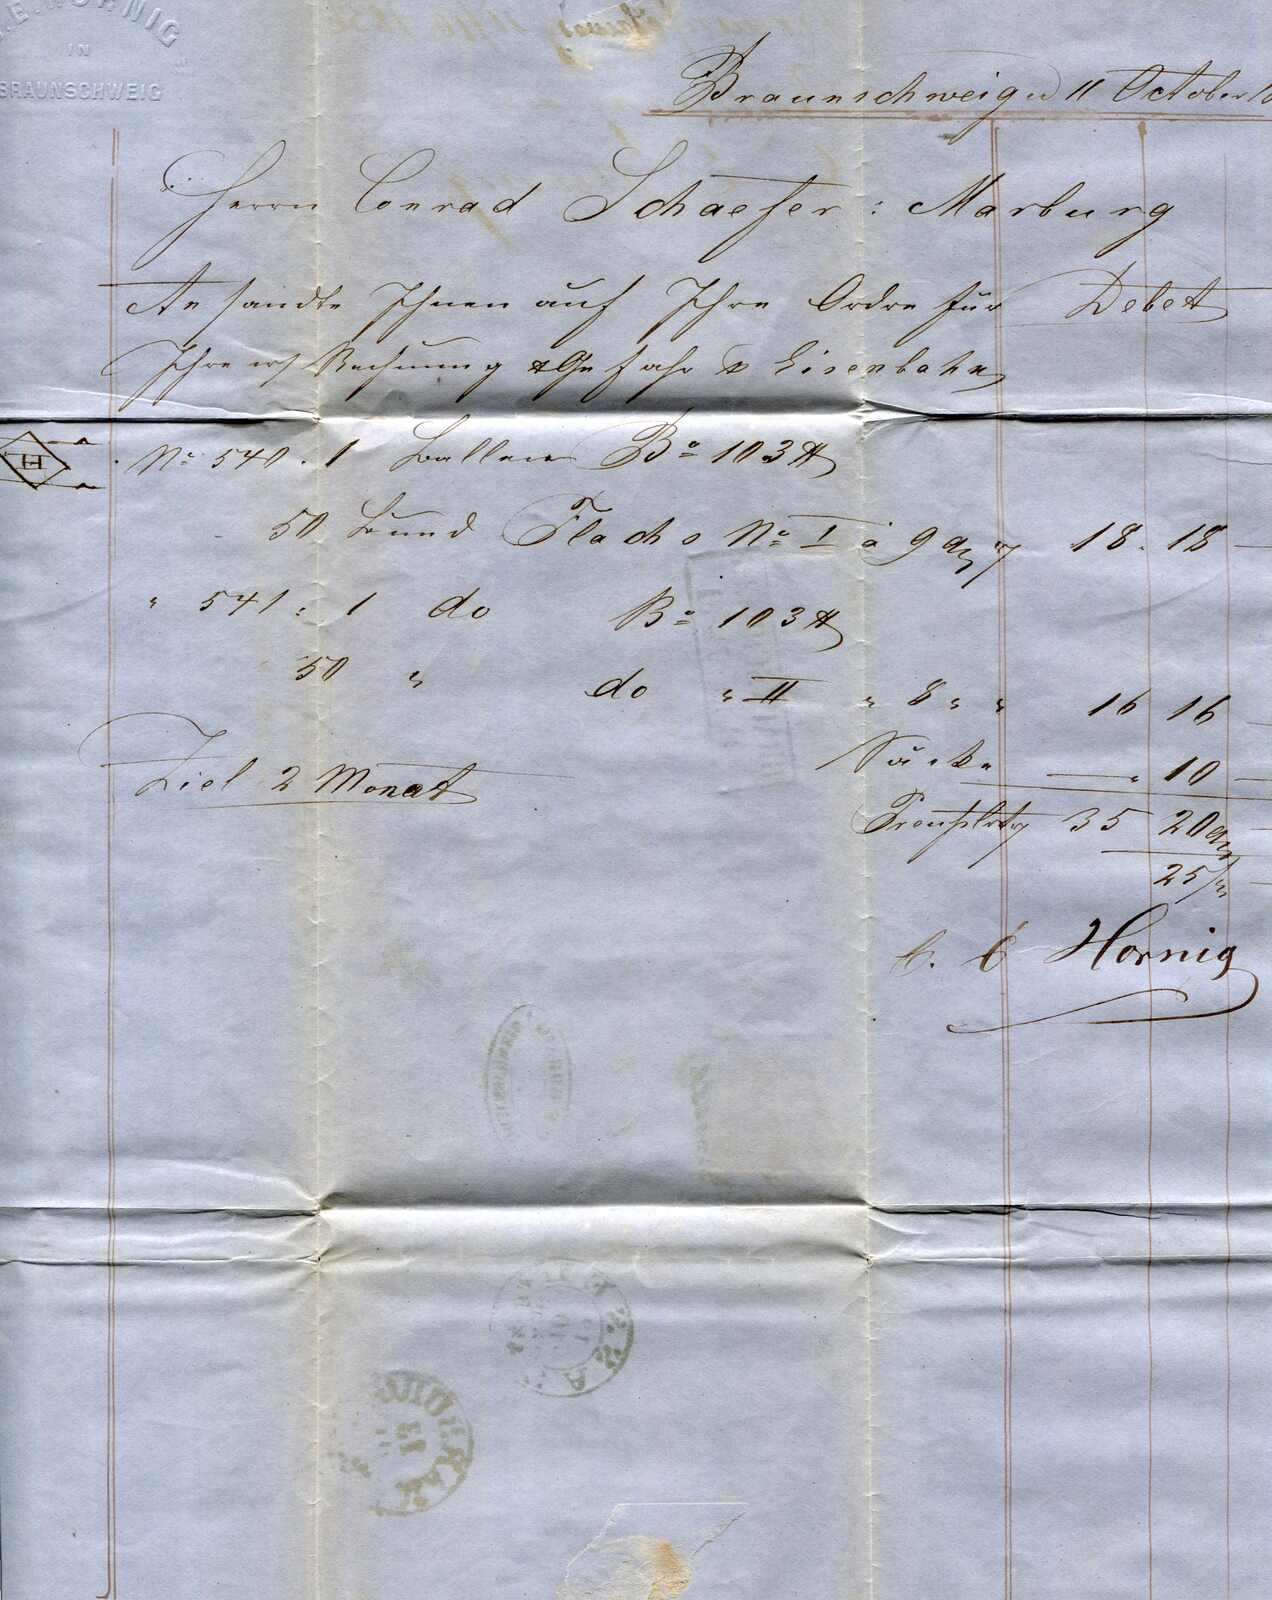 E. HORNIG
IN
BRAUNSCHWEIG
Braunschweig d 11 October
Herrn Conrad Schaefer : Marburg
sandte Ihnen auf Ihre Ordre für Debet
Ihre Rechnung & Gefahr Eisenbahn
H No 540. 1 Ballen Bo 103 ℔
50 Bund Flachs No I à 9 18. 18 —
" 541 : 1 do Bo 103 ℔
50 " do " II " 8 " " 16 16 —
Säcke — " 10 —
Ziel 2 Monat
35 20
25
C. E Hornig